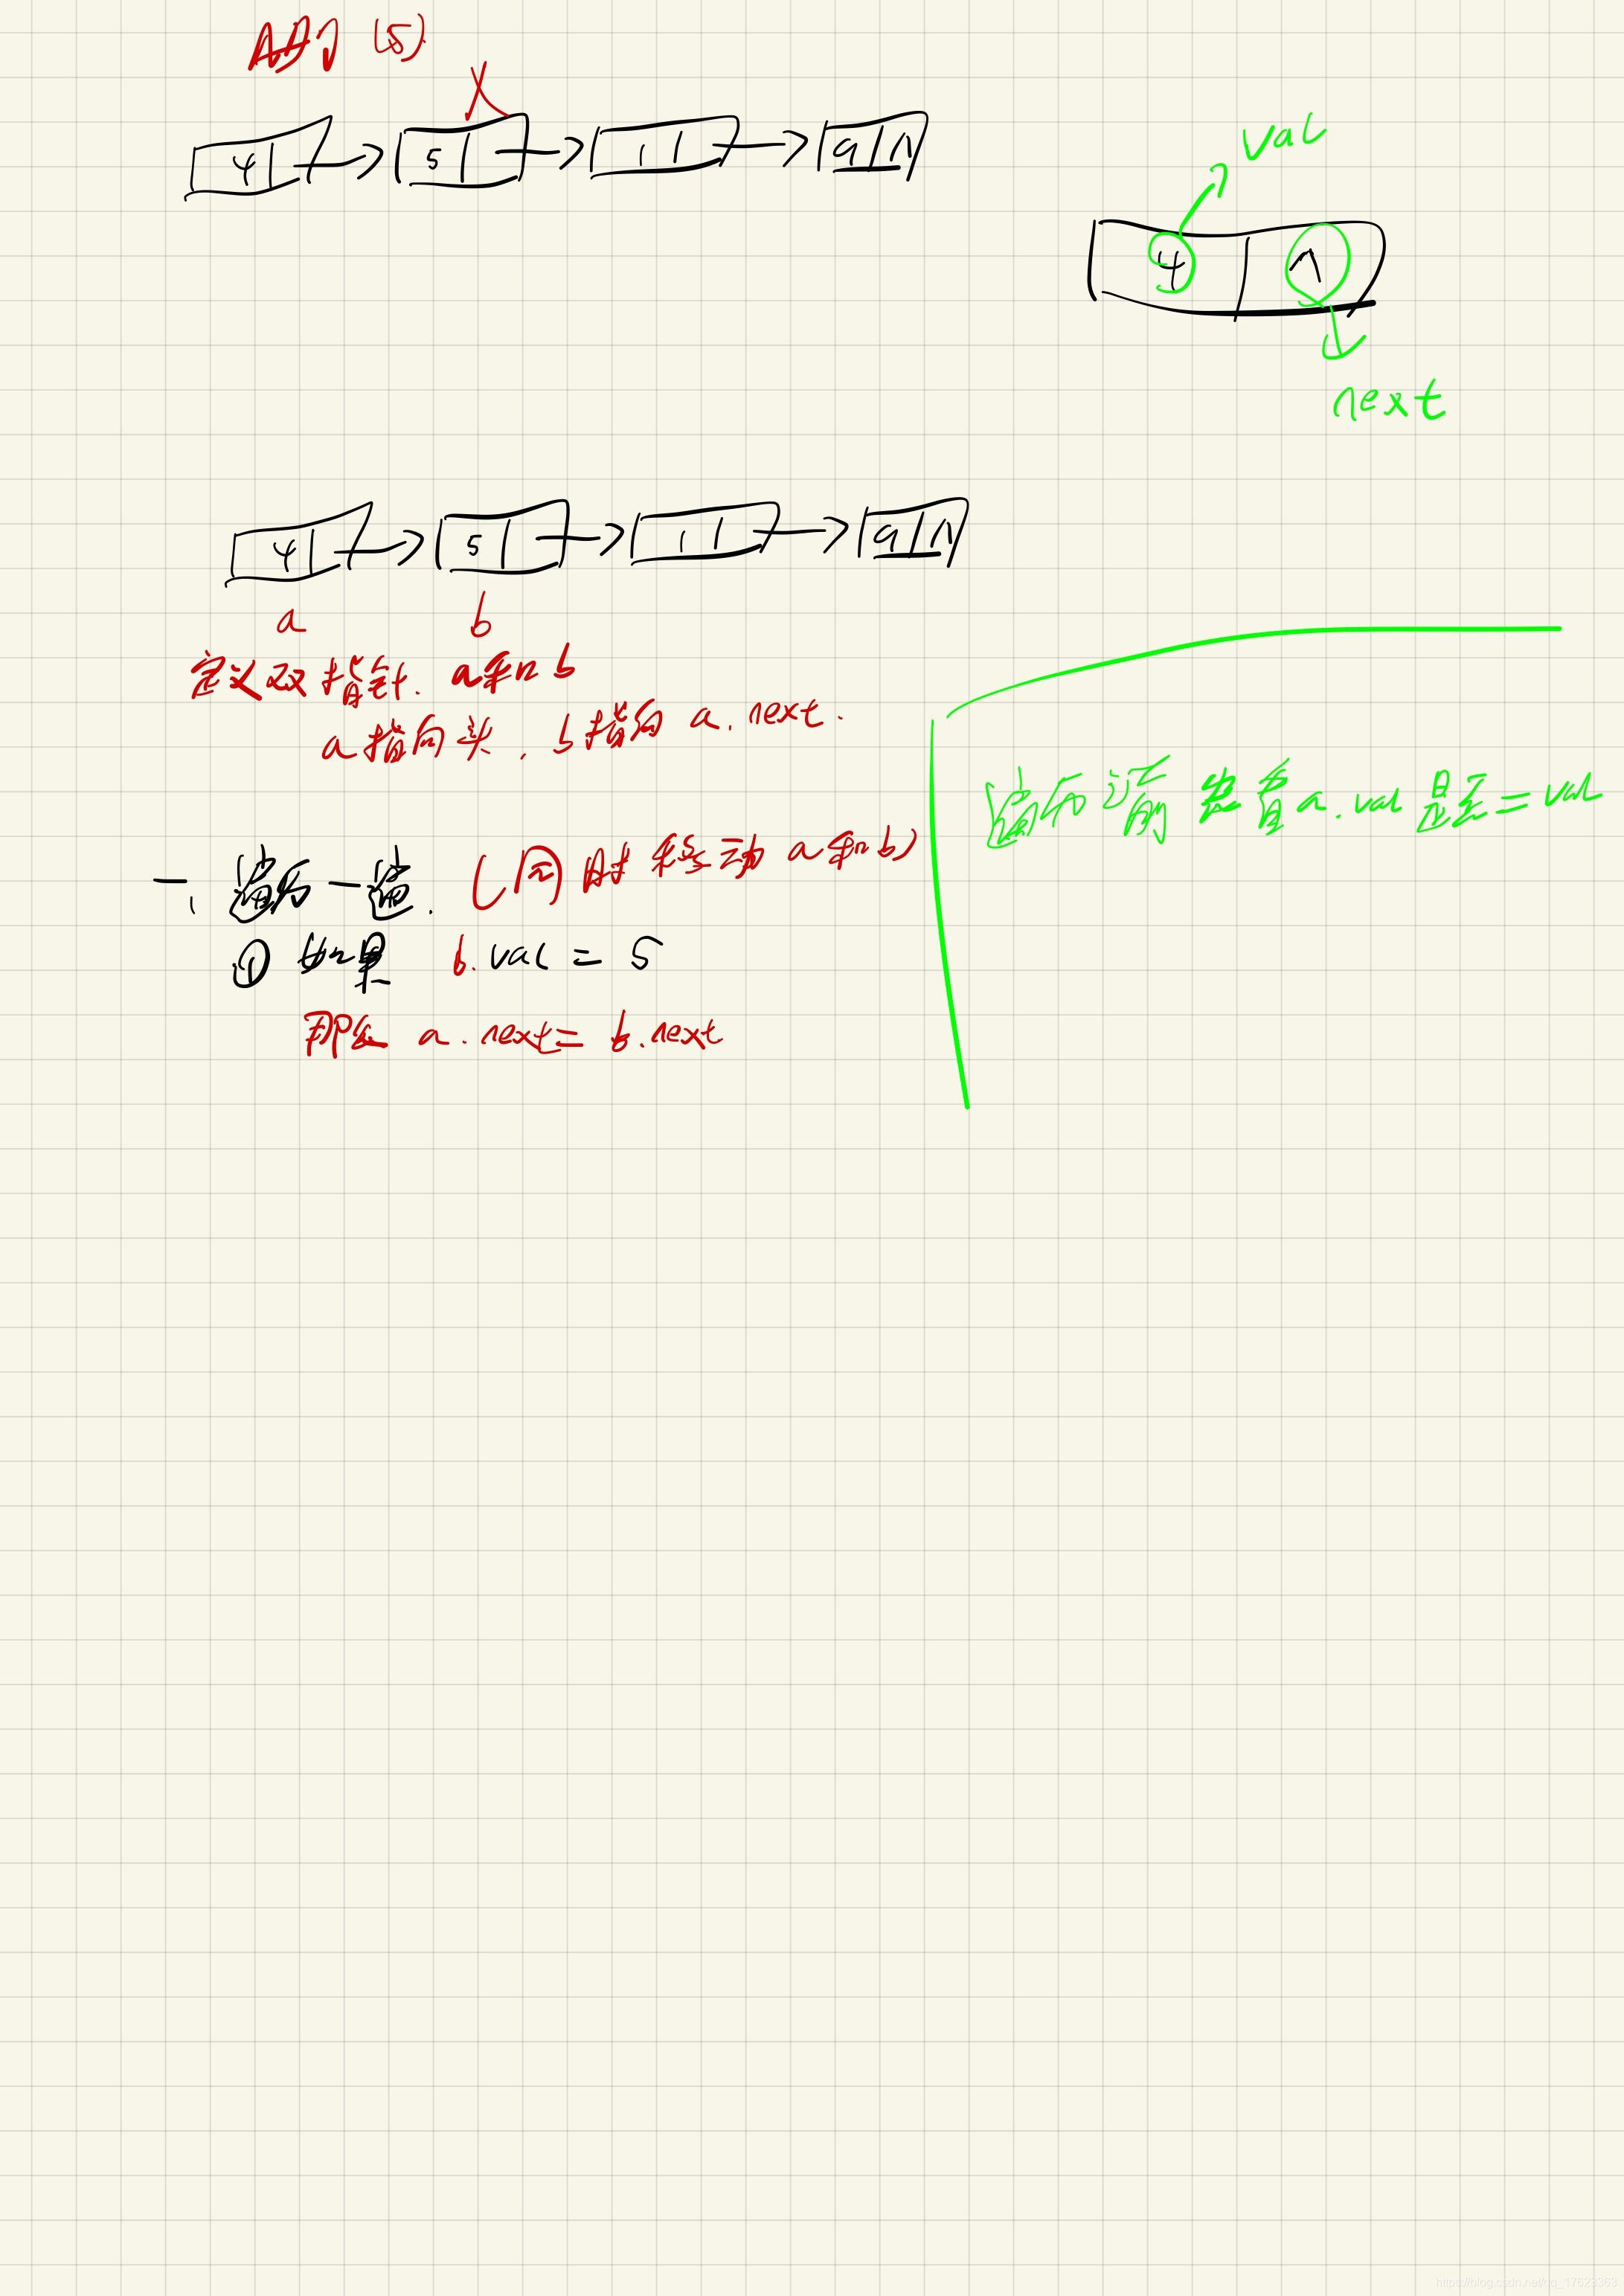 删 (5)
4 5 1 9 ∧
val
4 ∧
next
4 5 1 9 ∧
a b
定义双指针. a和 b
a指向头. b指向 a.next.
遍历之前 先查看 a.val 是否=val
一、遍历一遍. (同时移动 a和b)
① 如果 b.val = 5
那么 a.next= b.next
https://blog.csdn.net/qq_17623363